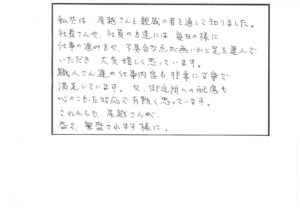 私共は、尾越さんを親戚の者を通して知りました。
社長さんや、社員の方達には毎日の様に
仕事の進み具合や、不具合な点が無いかと足を運んで
いただき 大変嬉しく思っています。
職人さん達の仕事内容も非常に丁寧で
満足しています。又、御近所への配慮も
心のこもった対応で有難く思っています。
これからも、尾越さんが、
益々、繁栄されます様に。